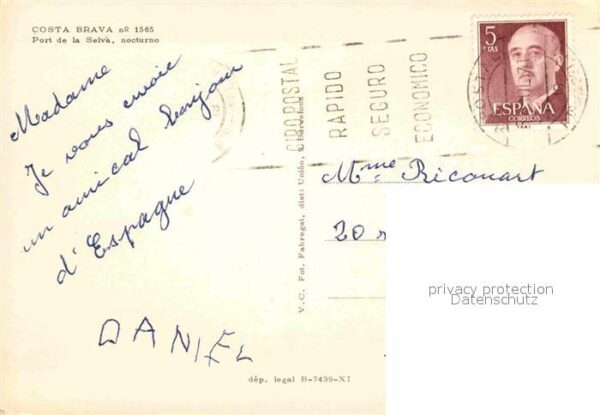 COSTA BRAVA nº 1565
Port de la Selva, nocturno
Madame
Je vous envoie
un amical bonjour
d'Espagne
DANIEL
GIRO POSTAL
RAPIDO
SEGURO
ECONOMICO
5
PTAS
ESPAÑA
CORREOS
Mme Ricouart
20
privacy protection
Datenschutz
V.C. Fot. Fabregat, dist: Unión, Barcelona
dép. legal B-7439-XI